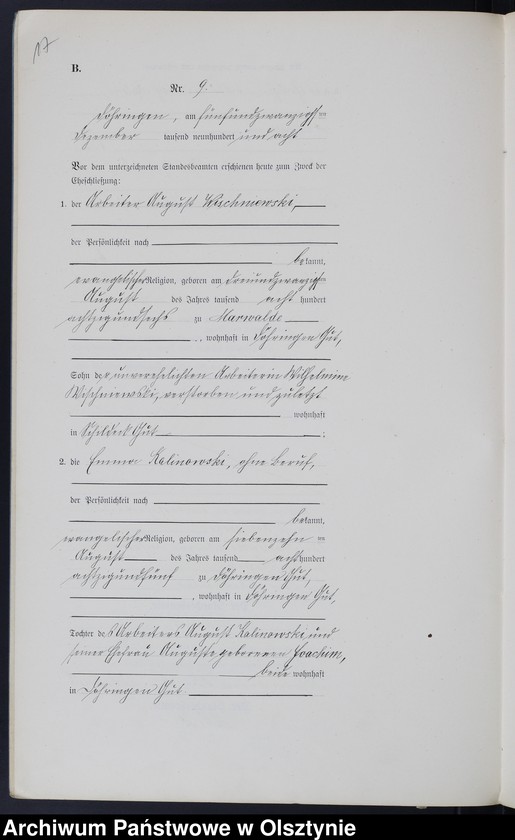 17
B.
Nr. 9.
Döhringen, am fünfundzwanzigsten
Dezember tausend neunhundert und acht
Vor dem unterzeichneten Standesbeamten erschienen heute zum Zweck der
Eheschließung:
1. der Arbeiter August
der Persönlichkeit nach
bekannt,
evangelischer Religion, geboren am dreiundzwanzigsten
August des Jahres tausend acht hundert
achtzigundsechs zu Marwalde
, wohnhaft in Döhringen Gut,
Sohn der unverehelichten Arbeiterin Wilhelmine
Wischniewski, verstorben und zuletzt
wohnhaft
in Schildeck Gut ;
2. die Emma Kalinowski, ohne Beruf,
der Persönlichkeit nach
bekannt,
evangelischer Religion, geboren am siebenzehnten
August des Jahres tausend acht hundert
achtzigundfünf zu Döhringen Gut,
, wohnhaft in Döhringen Gut,
Tochter des Arbeiters August Kalinowski und
seiner Ehefrau Auguste geborenen Joachim,
beide wohnhaft
in Döhringen Gut
Archiwum Państwowe w Olsztynie